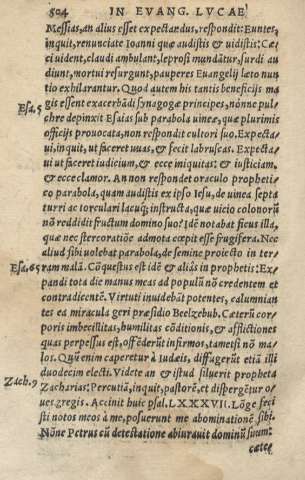 504 IN EVANG. LVCAE
Messias, an alius esset expectandus, respondit: Euntes,
inquit, renunciate Ioanni quæ audistis & uidistis: Cæ
ci uident, claudi ambulant, leprosi mundãtur, surdi au
diunt, mortui resurgunt, pauperes Euangelij læto nun
tio exhilarantur. Quod autem his tantis beneficijs ma
Esa, 5 gis essent exacerbãdi synagogæ principes, nónne pul
chre depinxit Esaias sub parabola uineæ, quæ plurimis
officijs prouocata, non respondit cultori suo. Expecta
ui, inquit, ut faceret uuas, & fecit labruscas. Expecta
ui ut faceret iudicium, & ecce iniquitas: & iusticiam,
& ecce clamor. An non respondet oraculo propheti
co parabola, quam audistis ex ipso Iesu, de uinea septa
turri ac torculari lacuq; instructa, quæ uicio colonorũ
nõ reddidit fructum domino suo? Idẽ notabat ficus illa,
quæ nec stercoratiõe admota cœpit esse frugifera. Nec
aliud sibi uolebat parabola, de semine proiecto in ter-
Esa, 65 ram malã. Cõquestus est idẽ & aliâs in prophetis: Ex-
pandi tota die manus meas ad populũ nõ credentem et
contradicentẽ. Virtuti inuidebãt potentes, calumnian
tes ea miracula geri præsidio Beelzebub. Cæterũ cor-
poris imbecillitas, humilitas cõditionis, & afflictiones
quas perpessus est, offẽderũt infirmos, tametsi nõ ma-
los. Quũ enim caperetur à Iudæis, diffugerũt etiã illi
duodecim electi. Videte an & istud siluerit propheta
Zach. 9 Zacharias: Percutiã, inquit, pastorẽ, et dispergẽtur o-
ues gregis. Accinit huic psal. LXXXVII. Lõge feci
sti notos meos à me, posuerunt me abominationẽ sibi.
Nõne Petrus cũ detestatione abiurauit dominũ suum:
cæte